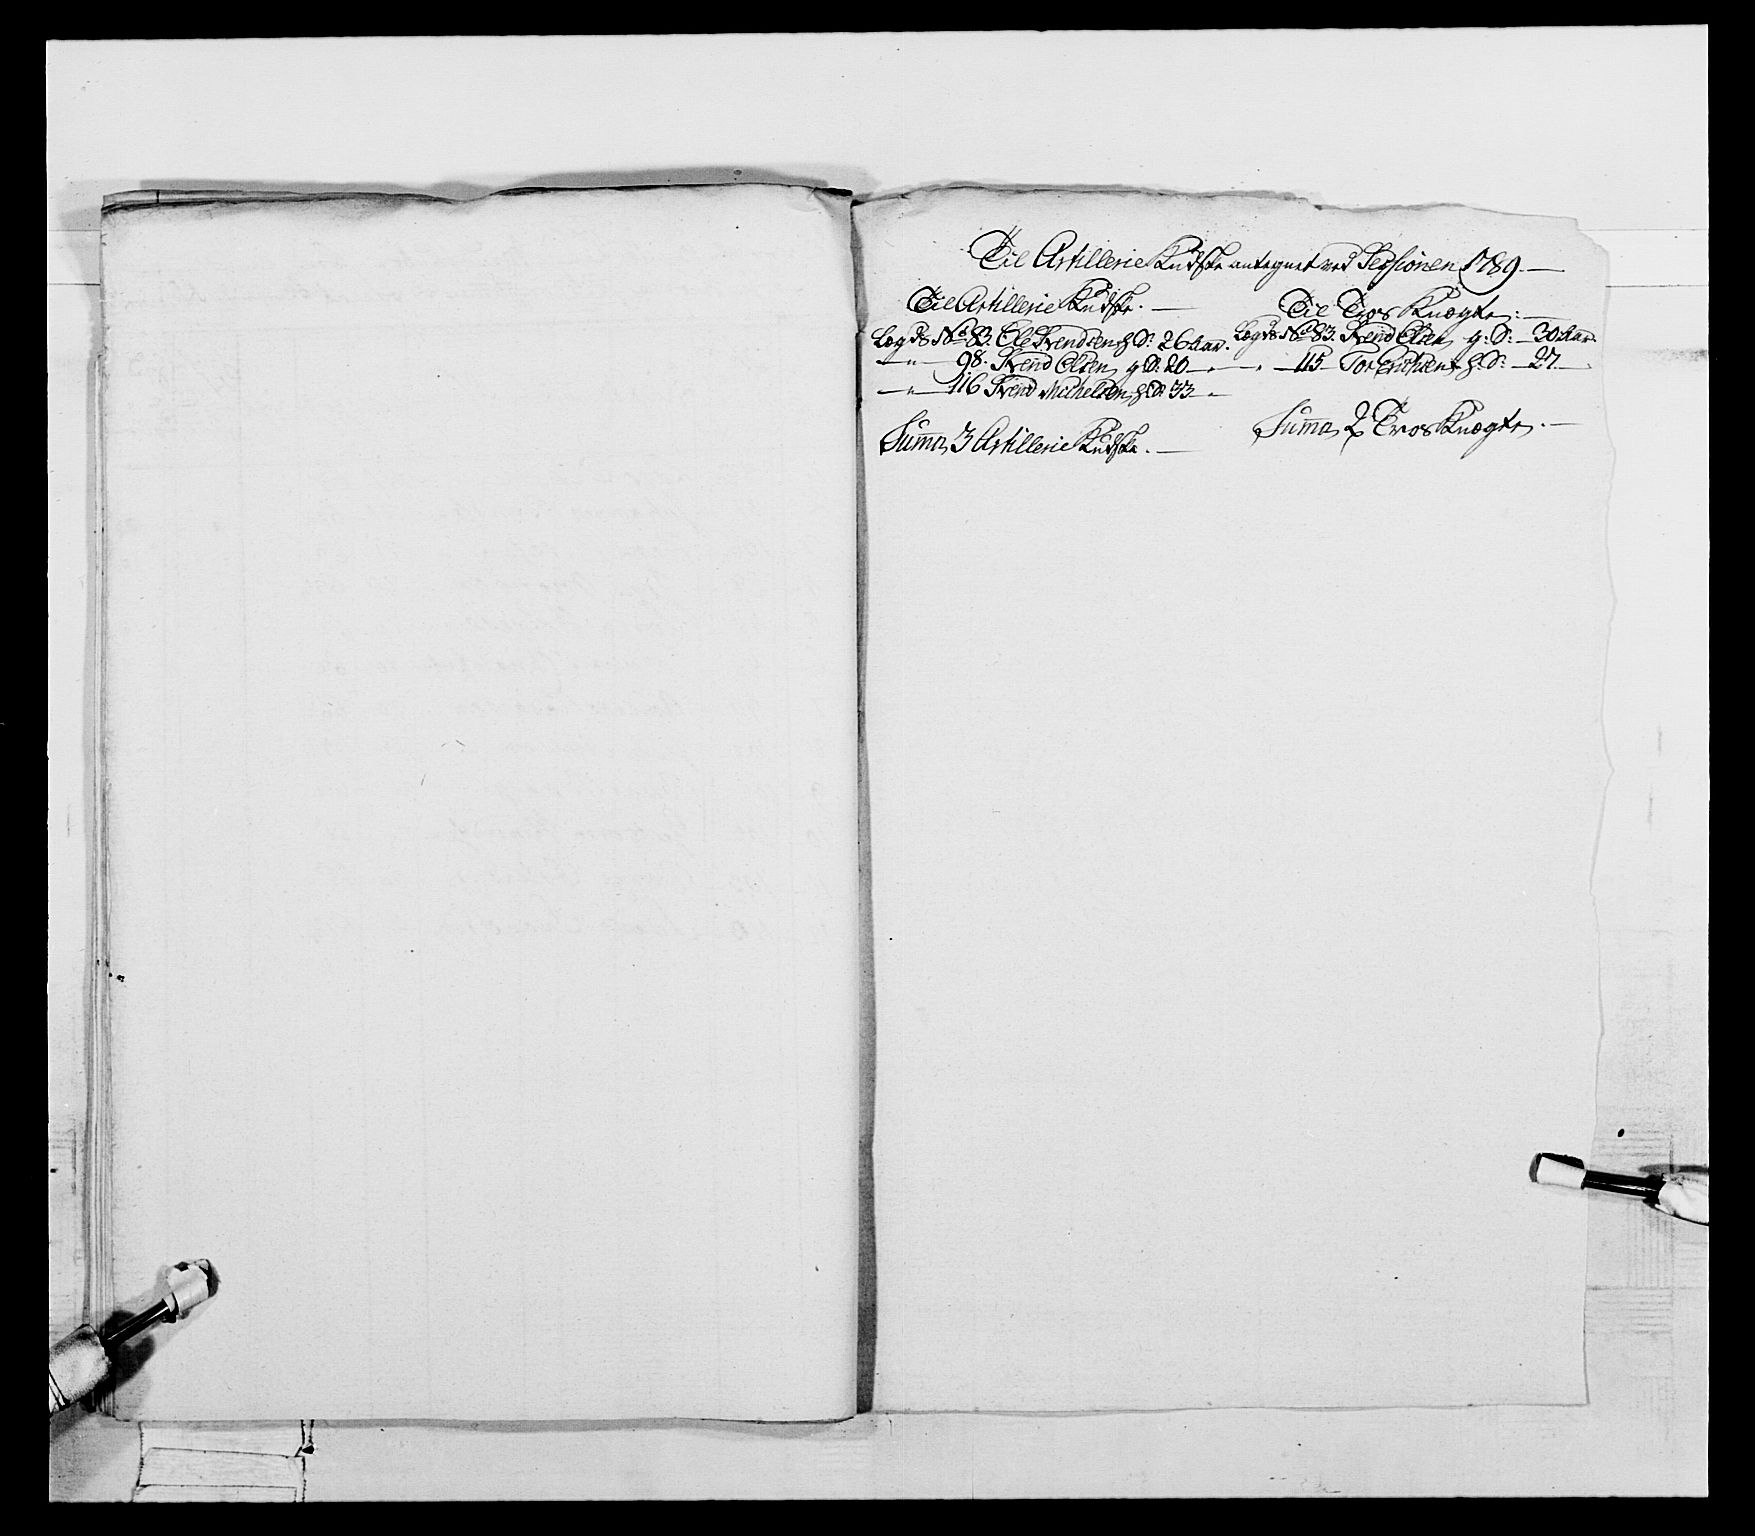 Til Artillerie Kudske antegnet ved Sessionen 1789.
Til Artillerie Kudske.
Lægds No 83. Ole Svendsen g. S: 26 Aar.
— " — 98. Svend Olsen g. S: 20 — " —
— " — 116 Svend Michelsen g. S: 33 — "
Summa 3 Artillerie Kudske.
Til Tros Knægte:
Lægds No 83. Svend Olsen g: S: — 30 Aar.
— " — 115 Tor g: S: — 27 —
Summa 2 Tros Knægte.